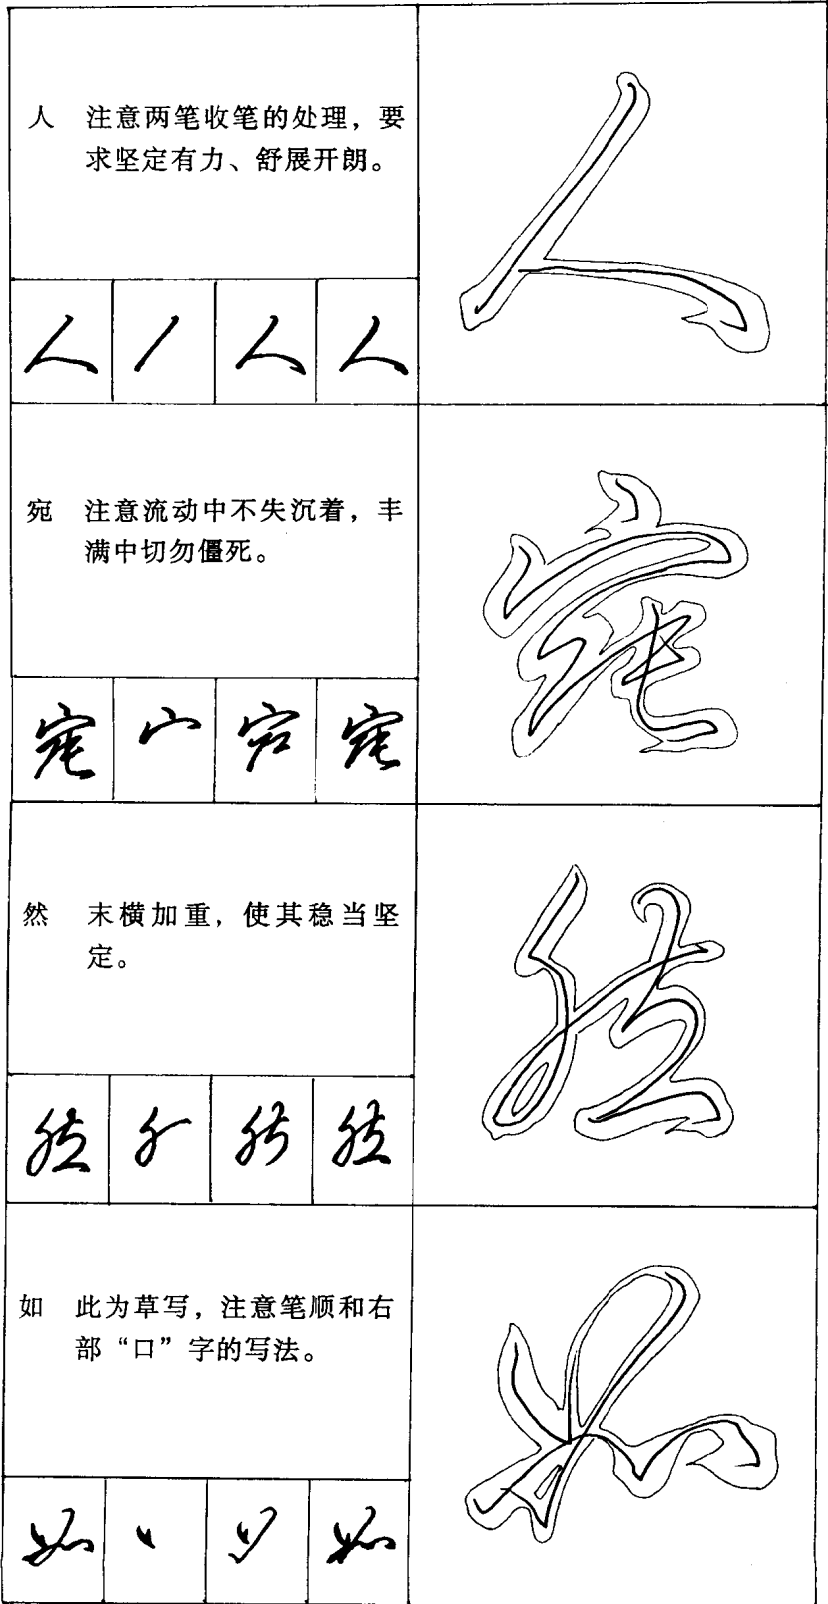 人 注意两笔收笔的处理，要
求坚定有力、舒展开朗。
人
人 丿 人 人
宛 注意流动中不失沉着，丰
满中切勿僵死。
宛
宛 宀 宛
然 末横加重，使其稳当坚
定。
然
然 然
如 此为草写，注意笔顺和右
部“口”字的写法。
如
如 如